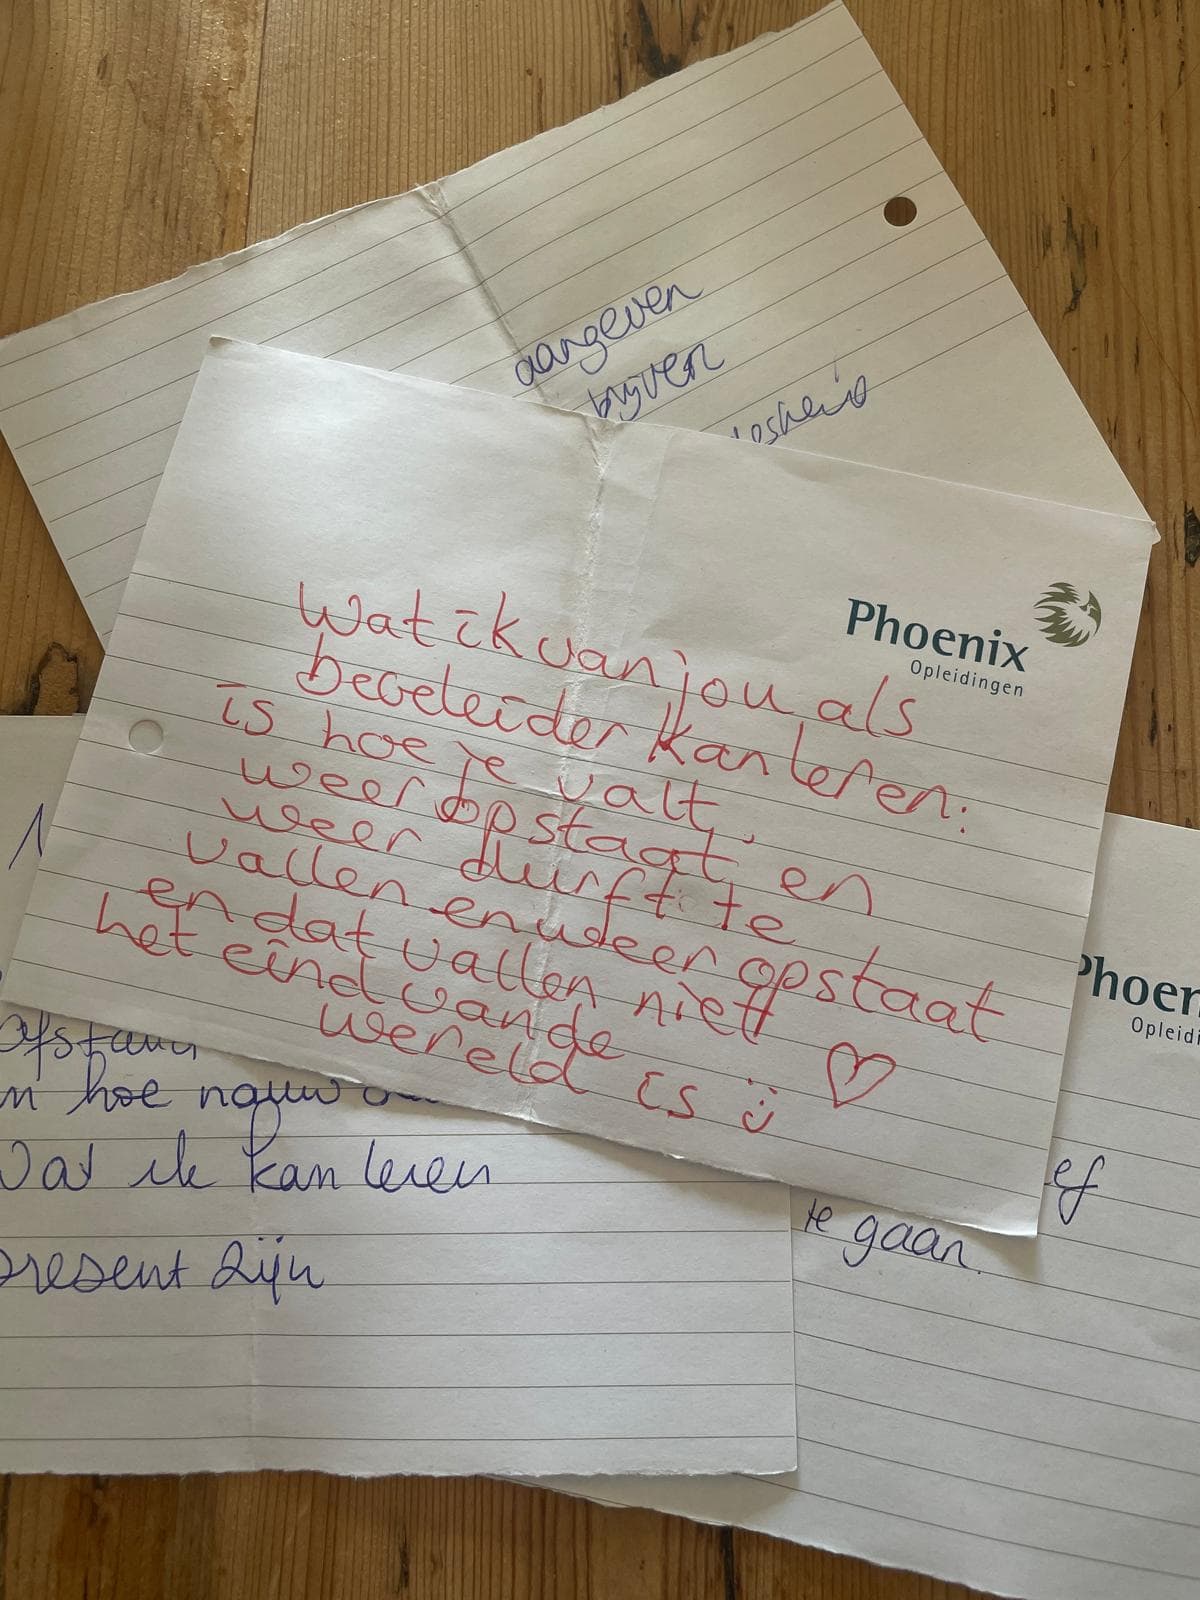 aangeven
blijven
Phoenix
Opleidingen
Wat ik van jou als
begeleider kan leren:
is hoe je valt,
weer opstaat en
weer durft te
vallen en weer opstaat
en dat vallen niet
het eind van de
wereld is :) ♡
Phoen
Opleidi
afstand
hoe nauw
Wat ik kan leren
present zijn
te gaan.